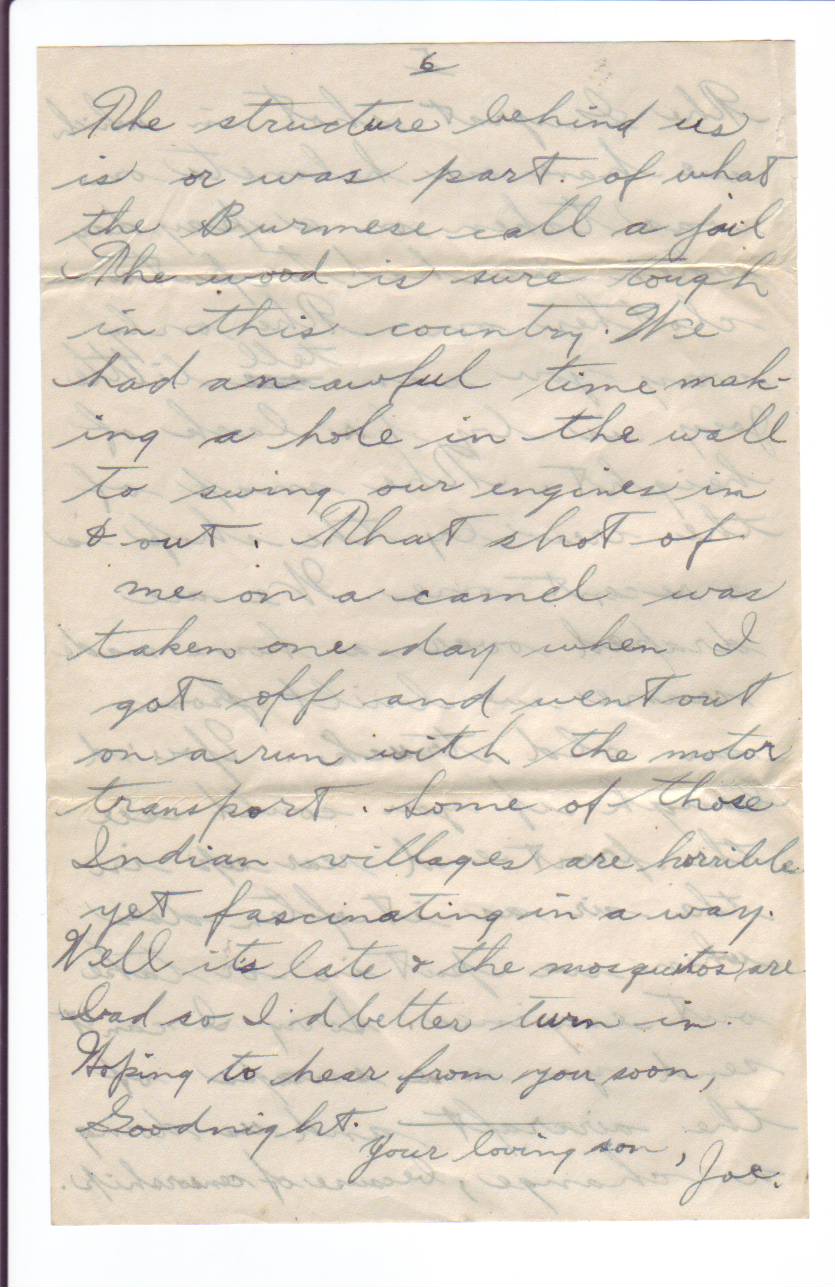 6
The structure behind us
is or was part of what
the Burmese call a jail
The wood is sure tough
in this country. We
had an awful time mak-
ing a hole in the wall
to swing our engines in
& out. That shot of
me on a camel was
taken one day when I
got off and went out
on a run with the motor
transport. Some of those
Indian villages are horrible
yet fascinating in a way.
Well it's late & the mosquitos are
bad so I'd better turn in.
Hoping to hear from you soon,
Goodnight.
Your loving son,
Joe.